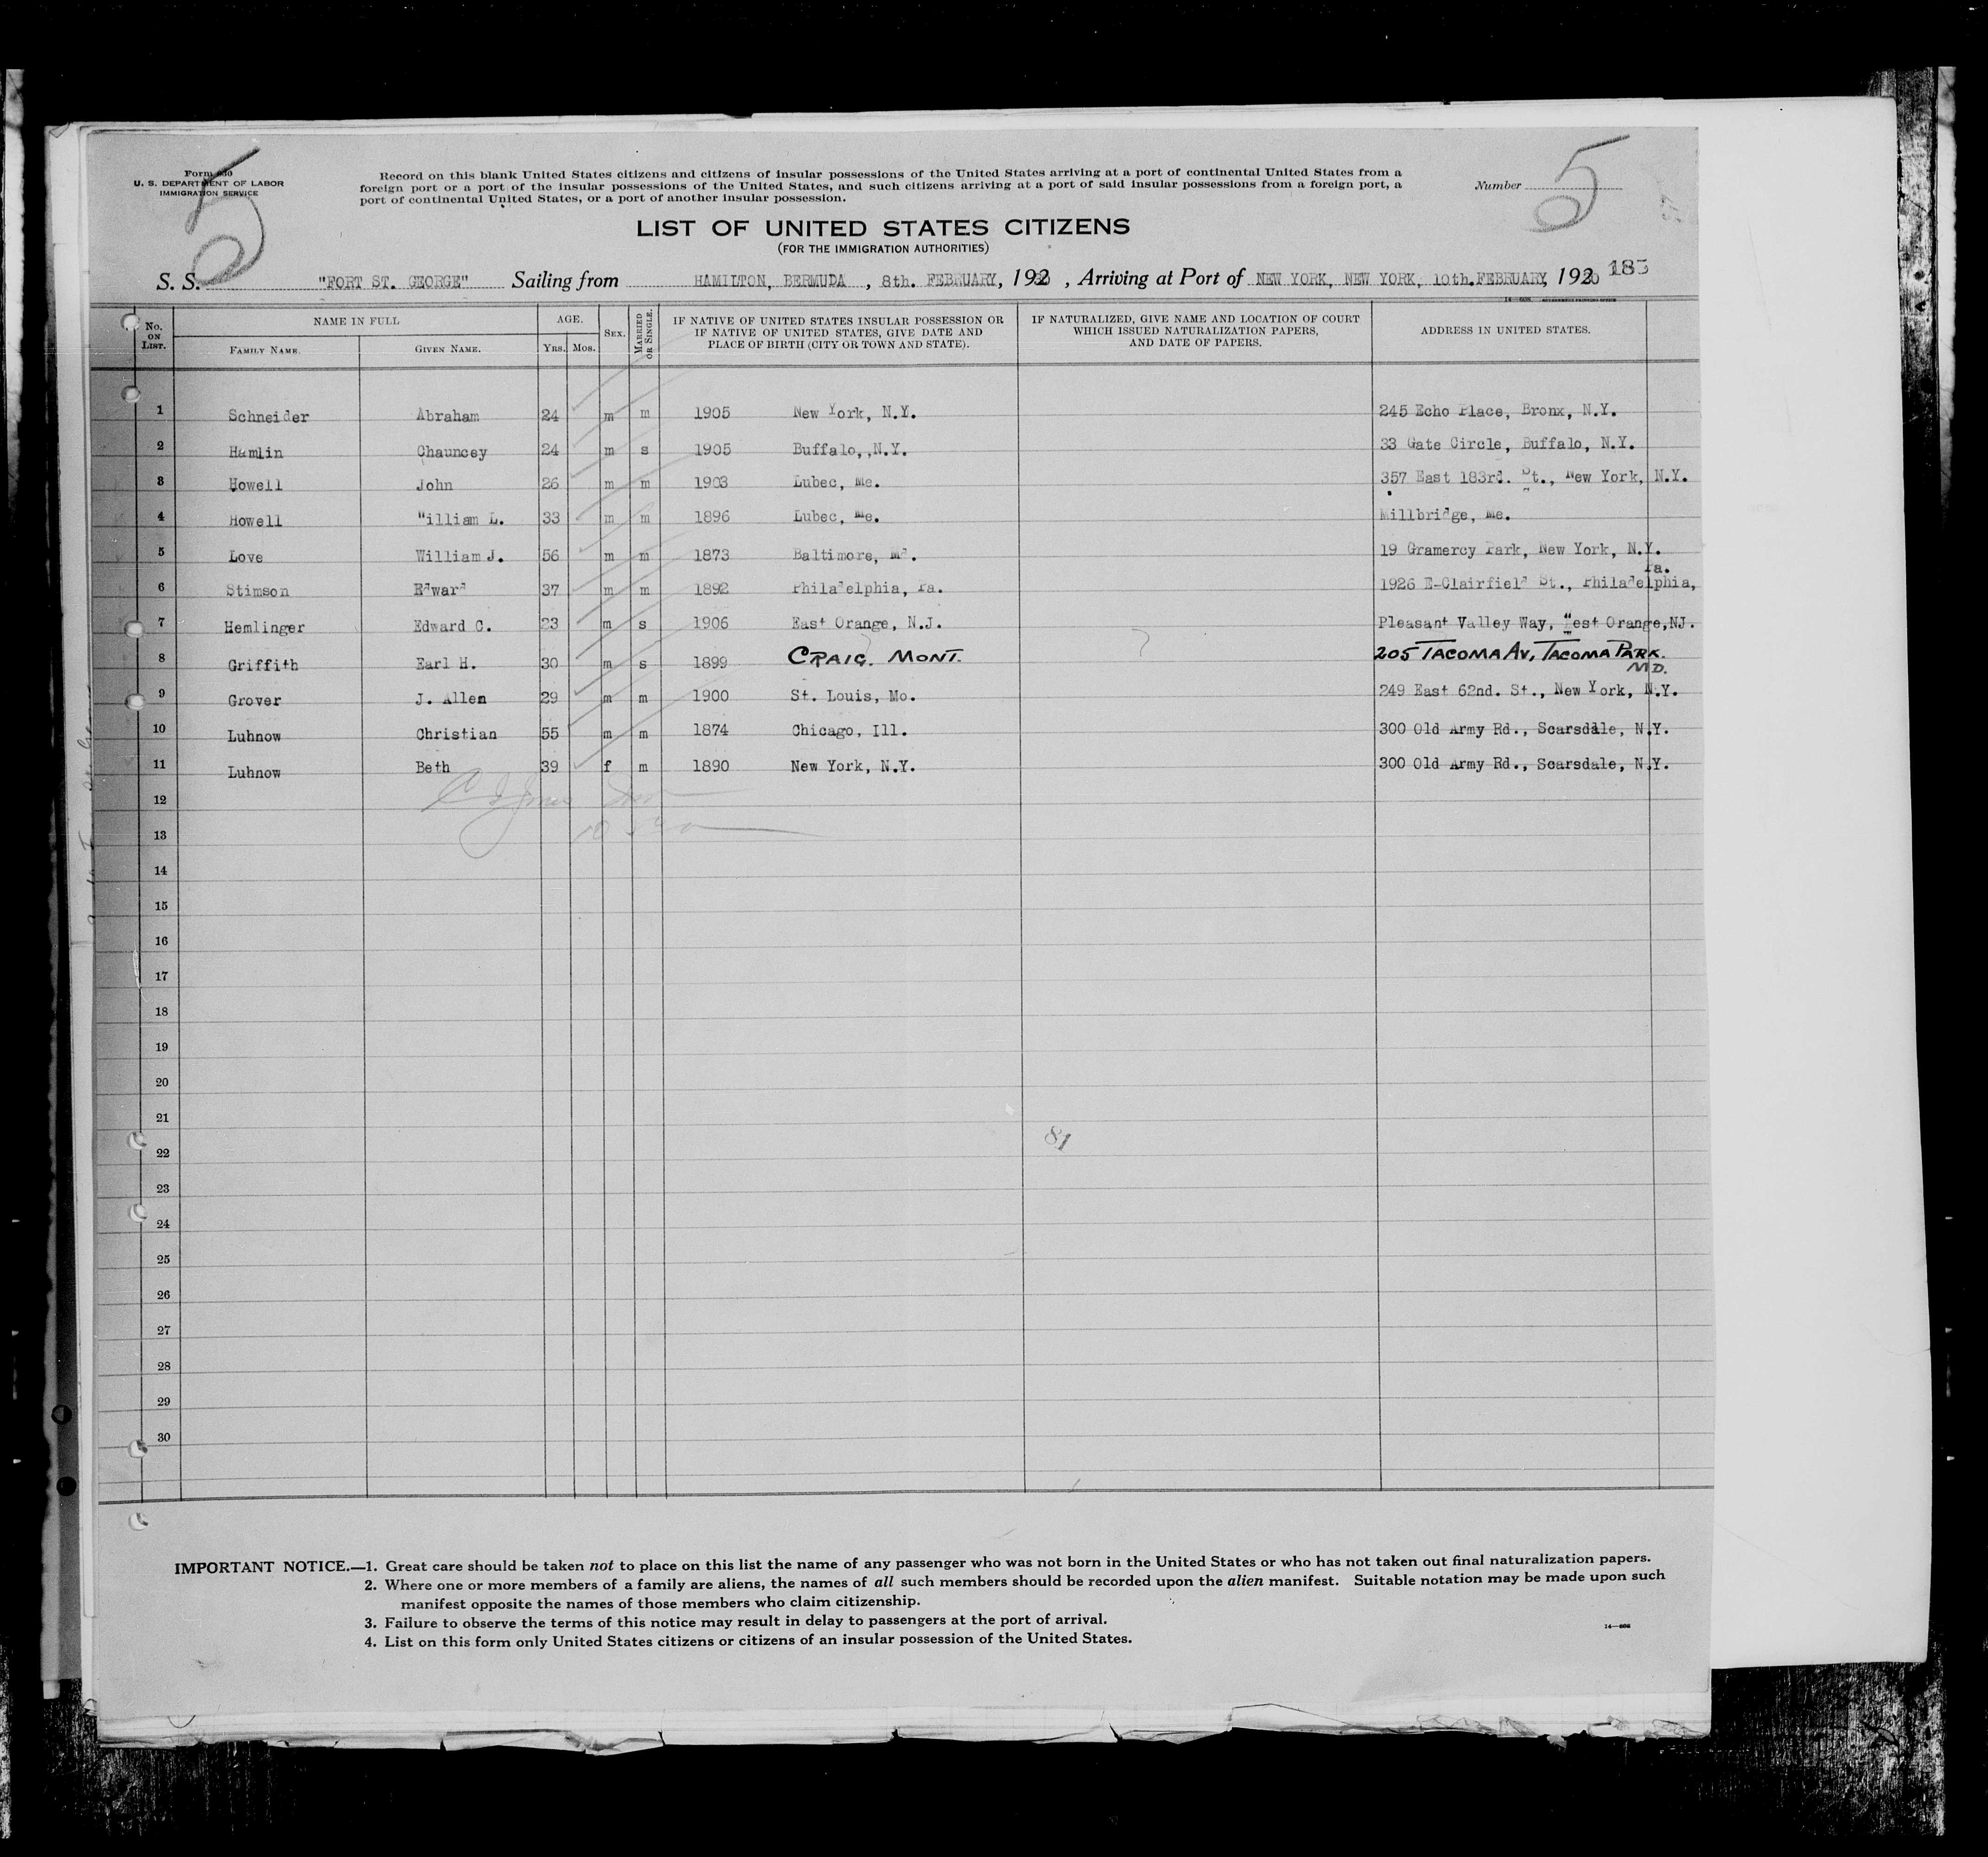 5
5
Form 630
U. S. DEPARTMENT OF LABOR
IMMIGRATION SERVICE
Record on this blank United States citizens and citizens of insular possessions of the United States arriving at a port of continental United States from a
foreign port or a port of the insular possessions of the United States, and such citizens arriving at a port of said insular possessions from a foreign port, a
port of continental United States, or a port of another insular possession.
Number
LIST OF UNITED STATES CITIZENS
(FOR THE IMMIGRATION AUTHORITIES)
S. S. "FORT ST. GEORGE" Sailing from HAMILTON, BERMUDA , 8th. FEBRUARY, 1930 , Arriving at Port of NEW YORK, NEW YORK, 10th. FEBRUARY, 1930 183
No. ON LIST. NAME IN FULL AGE. SEX. MARRIED OR SINGLE. IF NATIVE OF UNITED STATES INSULAR POSSESSION OR IF NATIVE OF UNITED STATES, GIVE DATE AND PLACE OF BIRTH (CITY OR TOWN AND STATE). IF NATURALIZED, GIVE NAME AND LOCATION OF COURT WHICH ISSUED NATURALIZATION PAPERS, AND DATE OF PAPERS. ADDRESS IN UNITED STATES.
FAMILY NAME. GIVEN NAME. YRS. MOS.
1 Schneider Abraham 24 m m 1905 New York, N.Y. 245 Echo Place, Bronx, N.Y.
2 Hamlin Chauncey 24 m s 1905 Buffalo,,N.Y. 33 Gate Circle, Buffalo, N.Y.
3 Howell John 26 m m 1903 Lubec, Me. 357 East 183rd. St., New York, N.Y.
4 Howell William L. 33 m m 1896 Lubec, Me. Millbridge, Me.
5 Love William J. 56 m m 1873 Baltimore, Md. 19 Gramercy Park, New York, N.Y.
6 Stimson Edward 37 m m 1892 Philadelphia, Pa. 1926 E-Clairfield St., Philadelphia, Pa.
7 Hemlinger Edward C. 23 m s 1906 East Orange, N.J. Pleasant Valley Way, West Orange,NJ.
8 Griffith Earl H. 30 m s 1899 CRAIG. MONT. 205 TACOMA AV, TACOMA PARK. MD.
9 Grover J. Allen 29 m m 1900 St. Louis, Mo. 249 East 62nd. St., New York, N.Y.
10 Luhnow Christian 55 m m 1874 Chicago, Ill. 300 Old Army Rd., Scarsdale, N.Y.
11 Luhnow Beth 39 f m 1890 New York, N.Y. 300 Old Army Rd., Scarsdale, N.Y.
12
13
14
15
16
17
18
19
20
21
81
22
23
24
25
26
27
28
29
30
IMPORTANT NOTICE.—1. Great care should be taken not to place on this list the name of any passenger who was not born in the United States or who has not taken out final naturalization papers.
2. Where one or more members of a family are aliens, the names of all such members should be recorded upon the alien manifest. Suitable notation may be made upon such
manifest opposite the names of those members who claim citizenship.
3. Failure to observe the terms of this notice may result in delay to passengers at the port of arrival.
4. List on this form only United States citizens or citizens of an insular possession of the United States.